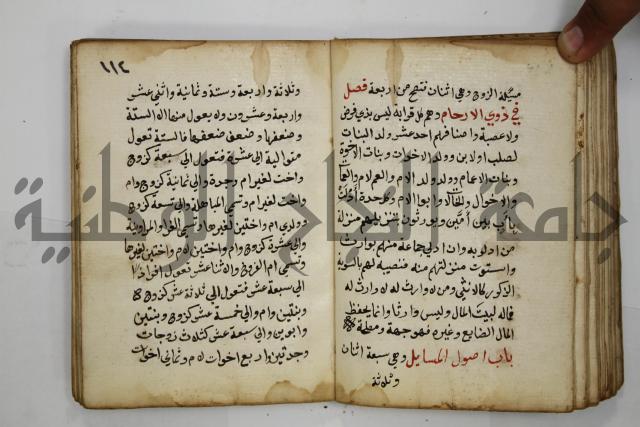 مسئلة الزوج وهي اثنان تصح من اربعة فصل
في ذوي الارحام وهم كل قرابة ليس بذي فرض
ولا عصبة واصنافهم احد عشر ولد البنات
لصلب او لابن وولد الاخوات وبنات الاخوة
وبنات الاعمام وولد ولد الام والعم لام والعمات
والاخوال والخالات وابو الام وكل جدة أدلت
بأب بين أمين ويورثون بتنزيلهم منزلة
من ادلوا به وان ادلى جماعة منهم بوارث
واستوت منزلتهم منه فنصيبه لهم بالسوية
الذكور كالانثى ومن لا وارث له
فماله لبيت المال وليس وارثا وانما يحفظ
المال الضايع وغيره فهو جهة ومصلحة
باب اصول المسايل وهي سبعة اثنان
وثلاثة
١١٢
وثلاثة واربعة وستة وثمانية واثنى عشر
واربعة وعشرون ولا يعول منها الا الستة
وضعفها وضعف ضعفها فالستة تعول
متوالية الى عشرة فتعول الى سبعة كزوج
واخت لغير ام وجدة والى ثمانية كزوج وام
واخت لغير ام وتسمى المباهلة والى تسعة كزوج
وولدي ام واختين لغيرها وتسمى الغرا والمروانية
والى عشرة كزوج وام واختين لام واختين لغيرها
وتسمى ام الفروخ والاثنا عشر تعول افرادا
الى سبعة عشر فتعول الى ثلاثة عشر كزوج
وبنتين وام والى خمسة عشر كزوج وبنتين
وابوين والى سبعة عشر كثلاث زوجات
وجدتين واربع اخوات لام وثماني اخوات
جامعة النجاح الوطنية